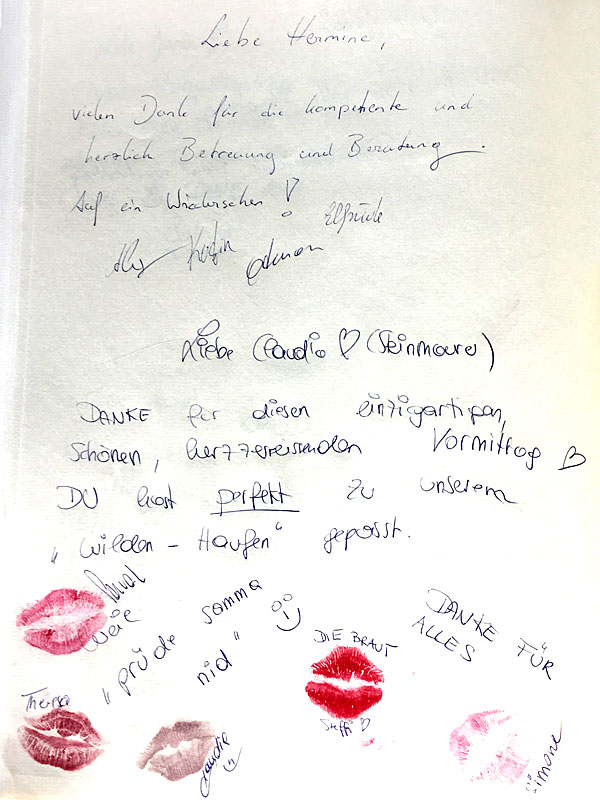 Liebe Hermine,
vielen Dank für die kompetente und
herzlich Betreuung und Beratung.
Auf ein Wiedersehen!
Elfriede
Liebe Claudia ♡ (Steinmaurer)
DANKE für diesen einzigartigen,
schönen, herzzereissenden Vormittag ♡
DU hast perfekt zu unserem
„wilden - Haufen“ gepasst.
weil
„prüde samma
nid“ :)
DIE BRAUT
Steffi B
DANKE FÜR
ALLES
Theresa
Claudia :)
Simone